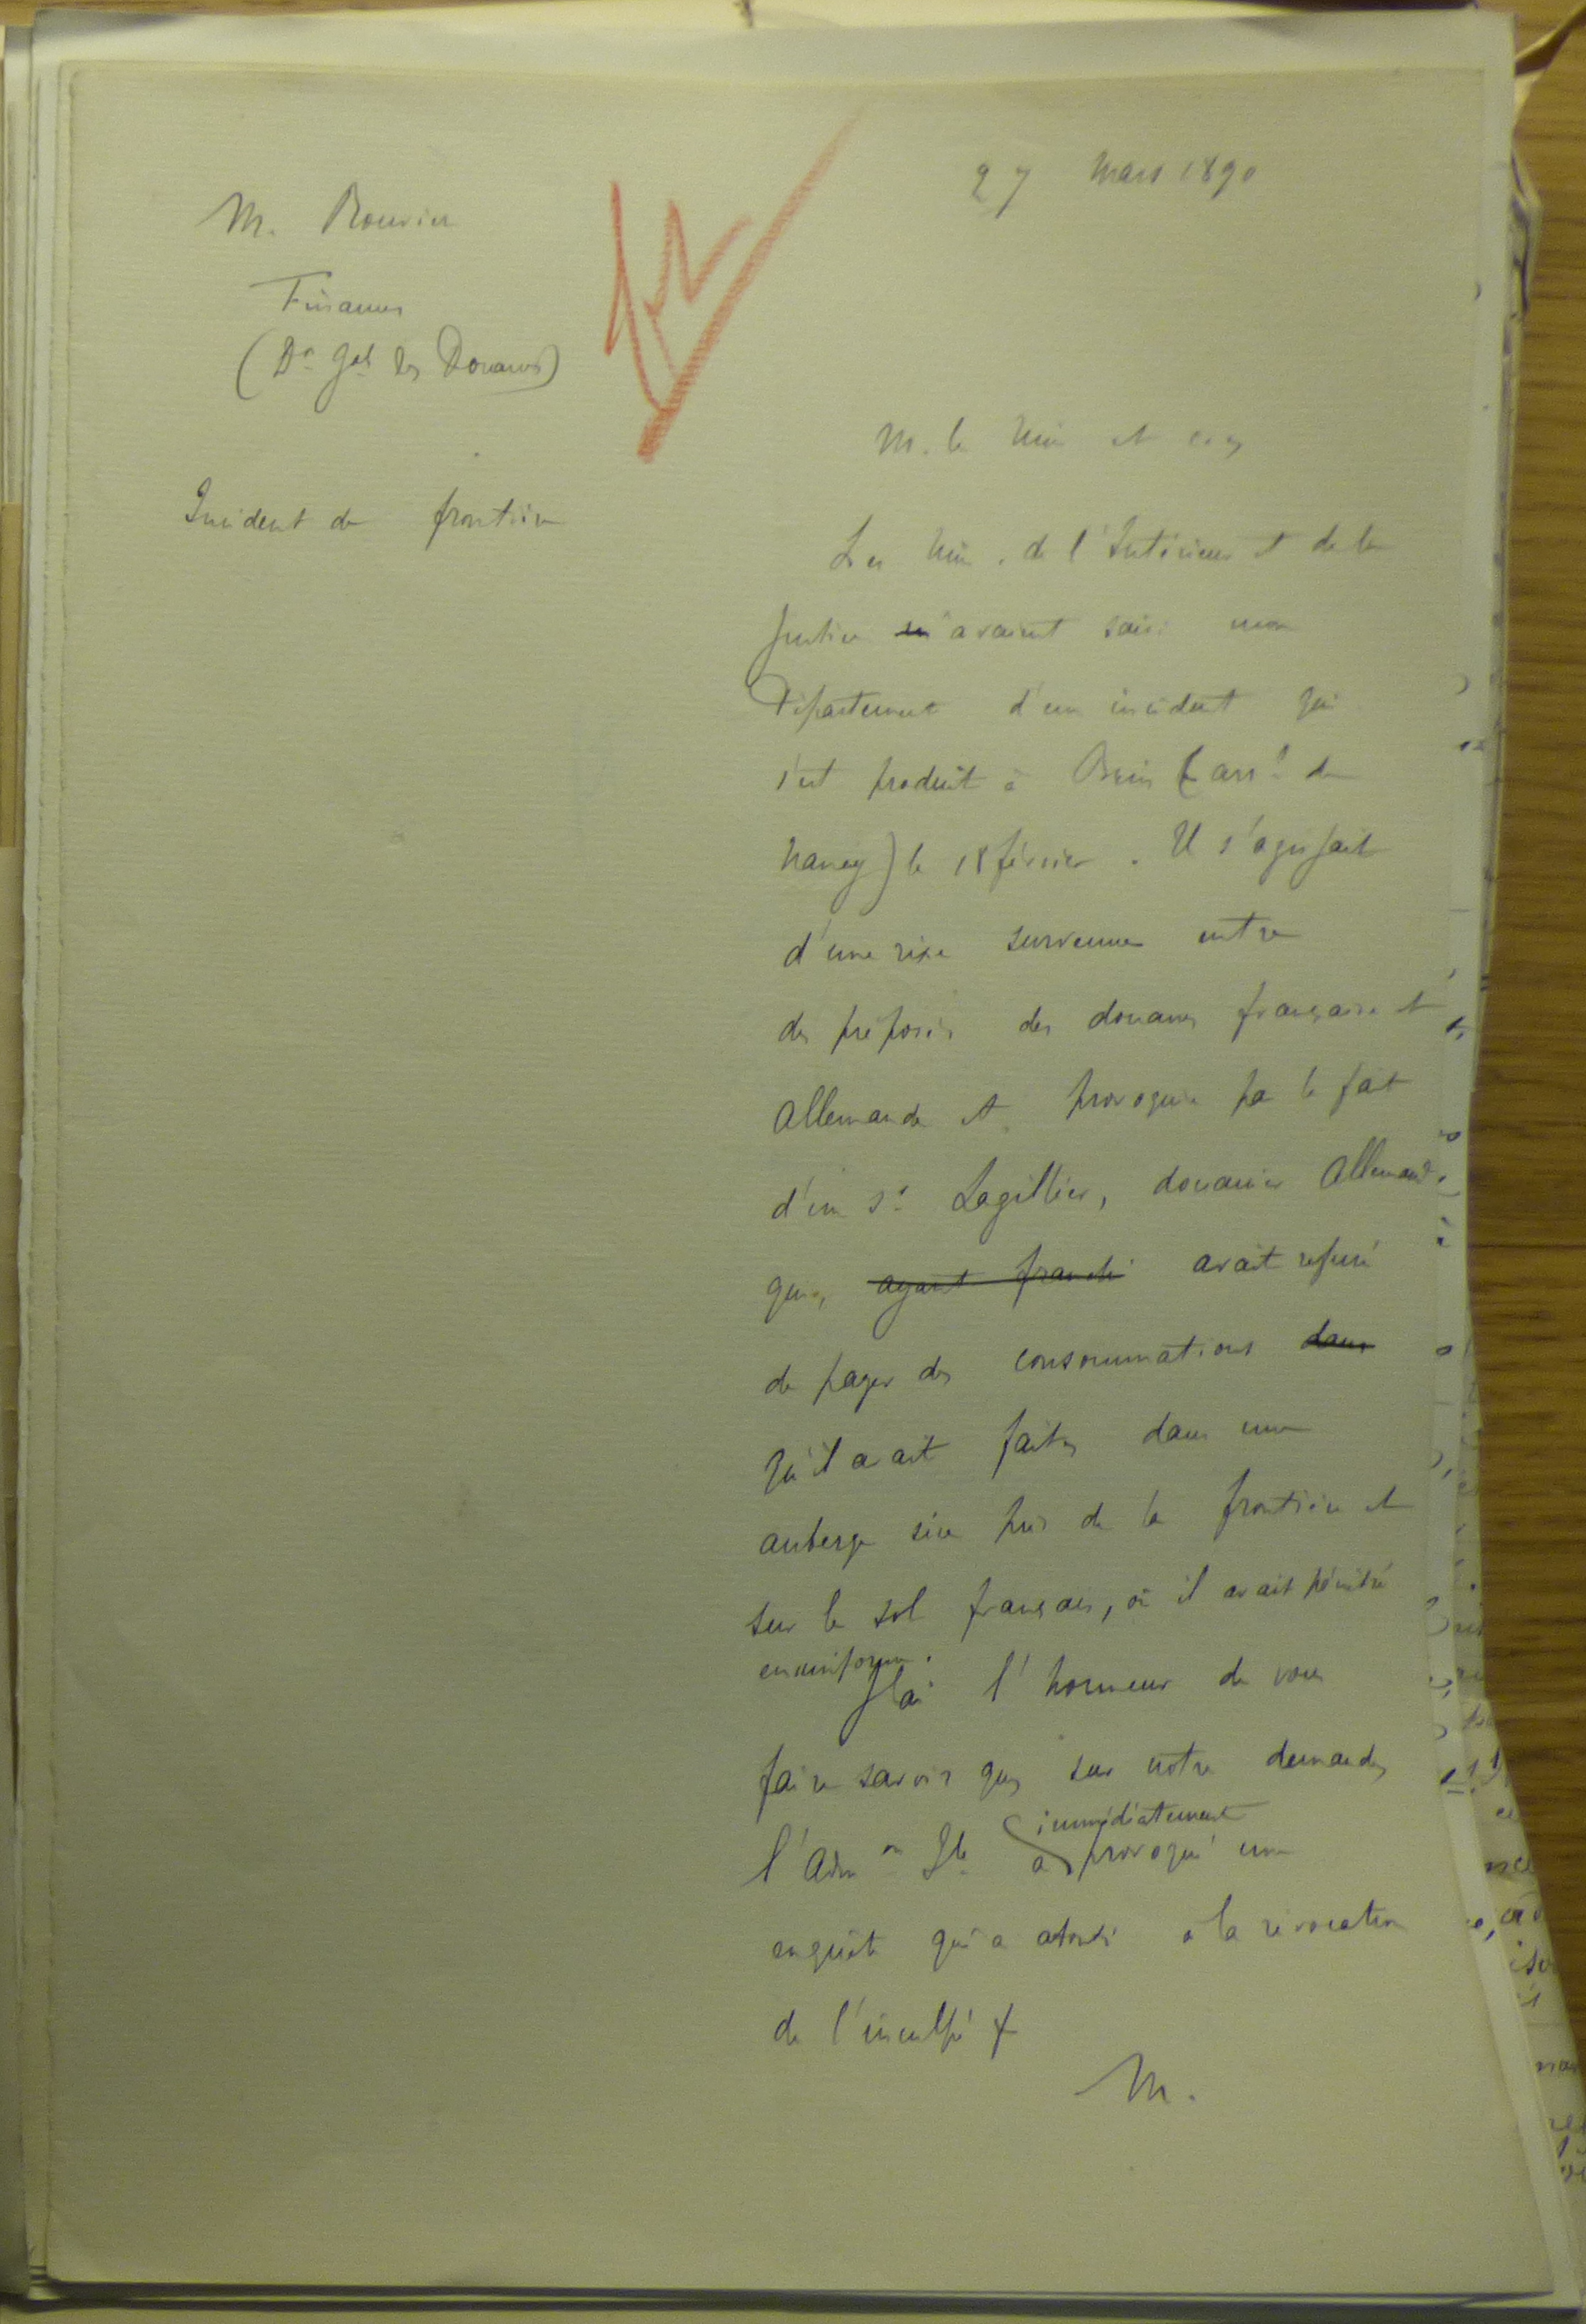 27 Mars 1890
M. Rouvier
Finances
(Don Gale des Douanes)
Incident de frontière
M. le Min et
Les Min. de l'Intérieur et de la
Justice m'avaient saisi mon
Département d'un incident qui
s'est produit à Brin (arrt de
Nancy) le 18 février. Il s'agissait
d'une rixe survenue entre
des préposés des douanes française et
Allemande et provoquée par le fait
d'un Sr Lagillier, douanier Allemand,
qui, ayant franchi avait refusé
de payer des consommations dans
qu'il avait faites dans une
auberge sise près de la frontière et
sur le sol français, où il avait pénétré
en uniforme.
J'ai l'honneur de vous
faire savoir que, sur notre demande,
l'Admon Ile a immédiatement provoqué une
enquête qui a abouti à la révocation
de l'inculpé
M.